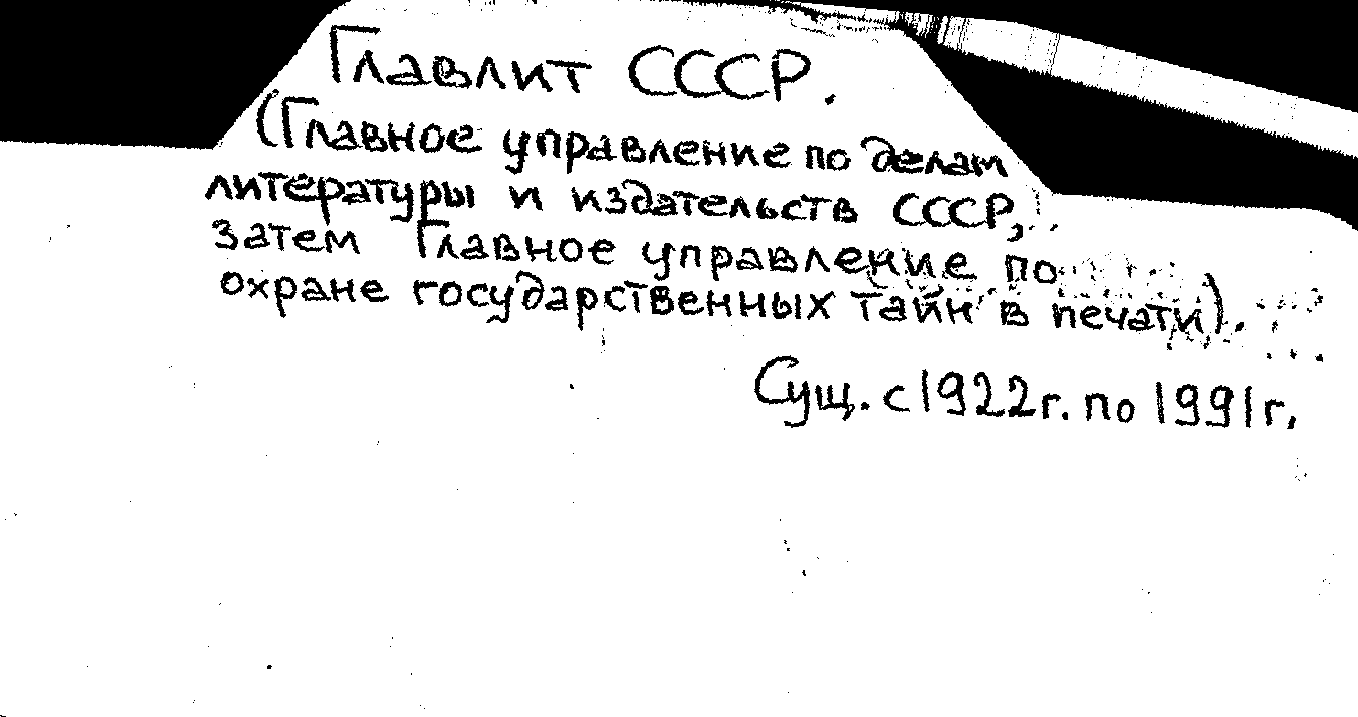 Главлит СССР.
(Главное управление по делам
литературы и издательств СССР,
затем Главное управление по
охране государственных тайн в печати).
Сущ. с 1922 г. по 1991 г.